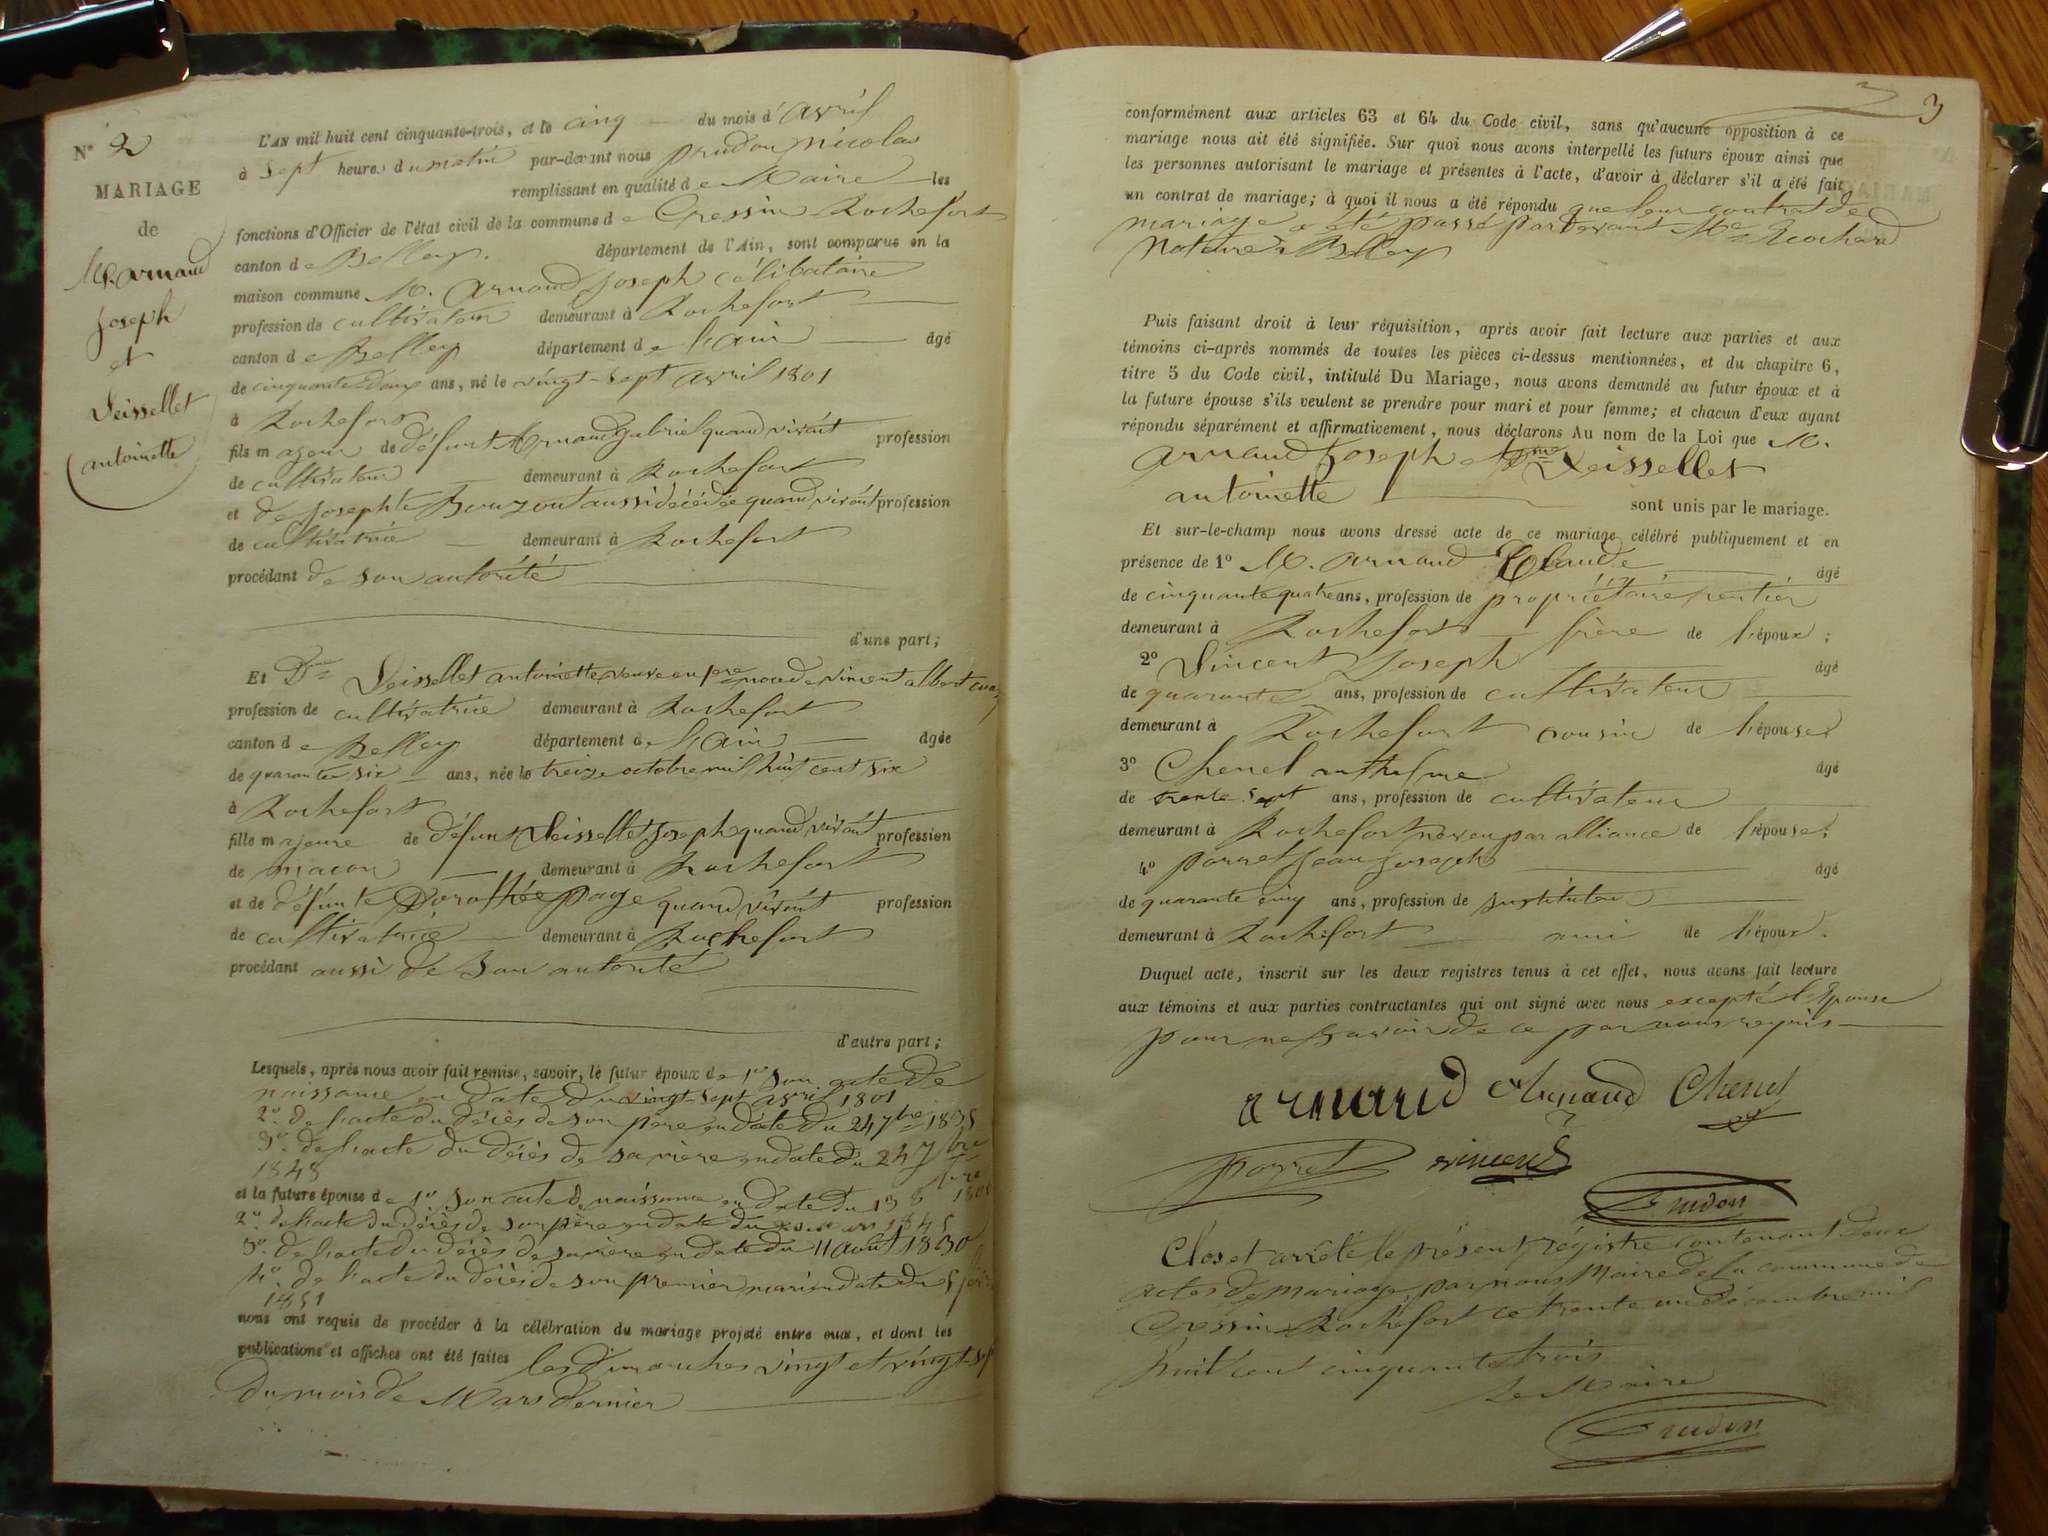 N° 2
MARIAGE
de
M. arnaud
joseph
et
Veissellet
antoinette
L'AN mil huit cent cinquante-trois, et le cinq du mois d'avril
à sept heures du matin par-devant nous prudon nicolas
remplissant en qualité de Maire les
fonctions d'Officier de l'état civil de la commune de Cressin Rochefort
canton de Belley. département de l'Ain, sont comparus en la
maison commune M. arnaud joseph célibataire
profession de cultivateur demeurant à Rochefort
canton de Belley département de l'ain âgé
de cinquante-deux ans, né le vingt-sept avril 1801
à Rochefort
fils majeur de défunt Arnaud gabriel quand vivait profession
de cultivateur demeurant à Rochefort
et de Josephte Bouzout aussi décédée quand vivait profession
de cultivatrice demeurant à Rochefort
procédant de son autorité
d'une part;
Et Dme Veissellet antoinette veuve en pres noce de vincent albert
profession de cultivatrice demeurant à Rochefort
canton de Belley département de l'ain âgée
de quarante six ans, née le treize octobre mil huit cent six
à Rochefort
fille majeure de défunt Veissellet Joseph quand vivait profession
de maçon demeurant à Rochefort
et de défunte Dorothée page quand vivait profession
de cultivatrice demeurant à Rochefort
procédant aussi de son autorité
d'autre part;
Lesquels, après nous avoir fait remise, savoir, le futur époux de 1° son acte de
naissance en date du vingt-sept avril 1801
2° de l'acte du décès de son père en date du 24 7bre 1835
3° de l'acte du décès de sa mère en date du 24 7bre
1848
et la future épouse de 1° son acte de naissance en date du 13 8bre 1806
2° de l'acte du décès de son père en date du 1845
3° de l'acte du décès de sa mère en date du 11 août 1830
4° de l'acte du décès de son premier mari en date du 5
1851
nous ont requis de procéder à la célébration du mariage projeté entre eux, et dont les
publications et affiches ont été faites les dimanches vingt et vingt-sept
du mois de Mars dernier
3
conformément aux articles 63 et 64 du Code civil, sans qu'aucune opposition à ce
mariage nous ait été signifiée. Sur quoi nous avons interpellé les futurs époux ainsi que
les personnes autorisant le mariage et présentes à l'acte, d'avoir à déclarer s'il a été fait
un contrat de mariage; à quoi il nous a été répondu que leur contrat de
mariage a été passé pardevant Me
Notaire à Belley
Puis faisant droit à leur réquisition, après avoir fait lecture aux parties et aux
témoins ci-après nommés de toutes les pièces ci-dessus mentionnées, et du chapitre 6,
titre 5 du Code civil, intitulé Du Mariage, nous avons demandé au futur époux et à
la future épouse s'ils veulent se prendre pour mari et pour femme; et chacun d'eux ayant
répondu séparément et affirmativement, nous déclarons Au nom de la Loi que M.
arnaud Joseph et Dme Veissellet
antoinette sont unis par le mariage.
Et sur-le-champ nous avons dressé acte de ce mariage célébré publiquement et en
présence de 1° M. arnaud Claude âgé
de cinquante quatre ans, profession de propriétaire rentier
demeurant à Rochefort frère de l'époux;
2° Vincent Joseph âgé
de quarante ans, profession de cultivateur
demeurant à Rochefort cousin de l'épouse
3° Chenel anthelme âgé
de trente sept ans, profession de cultivateur
demeurant à Rochefort neveu par alliance de l'épouse;
4° porret Jean Joseph âgé
de quarante cinq ans, profession de Instituteur
demeurant à Rochefort ami de l'époux.
Duquel acte, inscrit sur les deux registres tenus à cet effet, nous avons fait lecture
aux témoins et aux parties contractantes qui ont signé avec nous excepté l'Epouse
pour ne savoir de ce par nous requis
arnaud Arnaud Chenel
porret vincent
Prudon
Clos et arrêté le présent régistre contenant deux
actes de mariage par nous Maire de la commune de
Cressin Rochefort ce trente un décembre mil
huit cent cinquante trois
Le Maire
Prudon